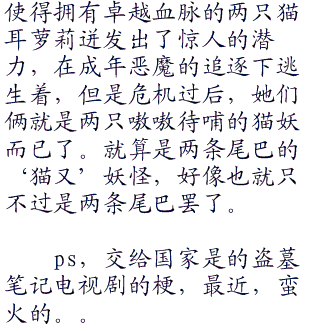 使得拥有卓越血脉的两只猫
耳萝莉迸发出了惊人的潜
力，在成年恶魔的追逐下逃
生着，但是危机过后，她们
俩就是两只嗷嗷待哺的猫妖
而已了。就算是两条尾巴的
‘猫又’妖怪，好像也就只
不过是两条尾巴罢了。
ps，交给国家是的盗墓
笔记电视剧的梗，最近，蛮
火的。。